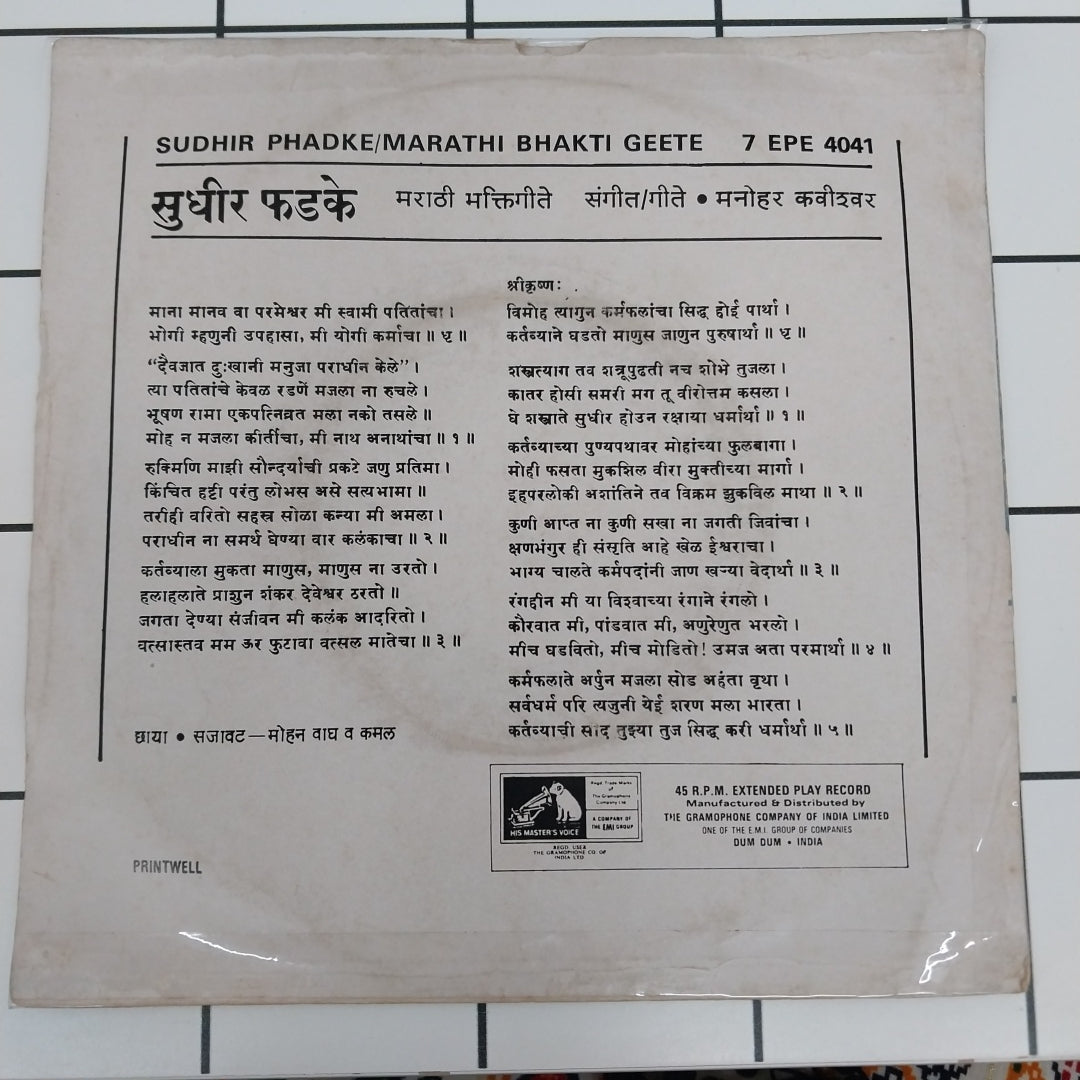 SUDHIR PHADKE/MARATHI BHAKTI GEETE 7 EPE 4041
सुधीर फडके मराठी भक्तिगीते संगीत/गीते • मनोहर कवीश्वर
माना मानव वा परमेश्वर मी स्वामी पतितांचा।
भोगी म्हणुनी उपहासा, मी योगी कर्माचा॥ धृ॥
“दैवजात दुःखानी मनुजा पराधीन केले”।
त्या पतितांचे केवळ रडणें मजला ना रुचले।
भूषण रामा एकपत्निव्रत मला नको तसले॥
मोह न मजला कीर्तीचा, मी नाथ अनाथांचा॥ १॥
रुक्मिणि माझी सौन्दर्याची प्रकटे जणु प्रतिमा।
किंचित हट्टी परंतु लोभस असे सत्यभामा॥
तरीही वरितो सहस्त्र सोळा कन्या मी अमला।
पराधीन ना समर्थ घेण्या वार कलंकाचा॥ २॥
कर्तव्याला मुकता माणुस, माणुस ना उरतो।
हलाहलाते प्राशुन शंकर देवेश्वर ठरतो॥
जगता देण्या संजीवन मी कलंक आदरितो।
वत्सास्तव मम ऊर फुटावा वत्सल मातेचा॥ ३॥
छाया • सजावट—मोहन वाघ व कमल
श्रीकृष्ण:
विमोह त्यागुन कर्मफलांचा सिद्ध होई पार्था।
कर्तव्याने घडतो माणुस जाणुन पुरुषार्था॥ धृ॥
शस्त्रत्याग तव शत्रूपुढती नच शोभे तुजला।
कातर होसी समरी मग तू वीरोत्तम कसला।
घे शस्त्राते सुधीर होउन रक्षाया धर्मार्था॥ १॥
कर्तव्याच्या पुण्यपथावर मोहांच्या फुलबागा।
मोही फसता मुकशिल वीरा मुक्तीच्या मार्गा।
इहपरलोकी अशांतिने तव विक्रम झुकविल माथा॥ २॥
कुणी आप्त ना कुणी सखा ना जगती जिवांचा।
क्षणभंगुर ही संसृति आहे खेळ ईश्वराचा।
भाग्य चालते कर्मपदांनी जाण खऱ्या वेदार्था॥ ३॥
रंगहीन मी या विश्वाच्या रंगाने रंगलो।
कौरवात मी, पांडवात मी, अणुरेणुत भरलो।
मीच घडवितो, मीच मोडितो! उमज अता परमार्था॥ ४॥
कर्मफलाते अर्पुन मजला सोड अहंता वृथा।
सर्वधर्म परि त्यजुनी येई शरण मला भारता।
कर्तव्याची साद तुझ्या तुज सिद्ध करी धर्मार्था॥ ५॥
HIS MASTER'S VOICE
Regd. Trade Marks
of
The Gramophone
Company Ltd
A COMPANY OF
THE EMI GROUP
REGD. USER
THE GRAMOPHONE CO. OF
INDIA LTD
45 R.P.M. EXTENDED PLAY RECORD
Manufactured & Distributed by
THE GRAMOPHONE COMPANY OF INDIA LIMITED
ONE OF THE E.M.I. GROUP OF COMPANIES
DUM DUM • INDIA
PRINTWELL